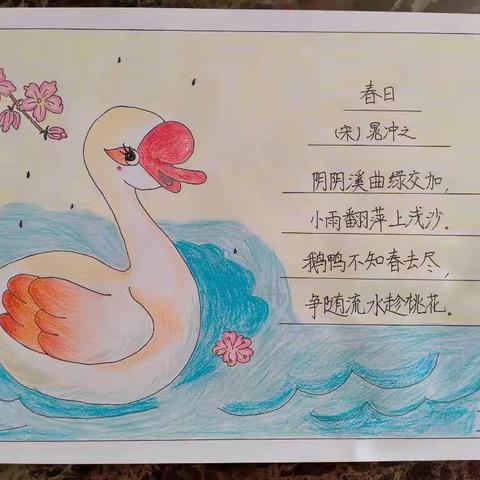 春日
(宋)晁冲之
阴阴溪曲绿交加,
小雨翻萍上浅沙。
鹅鸭不知春去尽,
争随流水趁桃花。